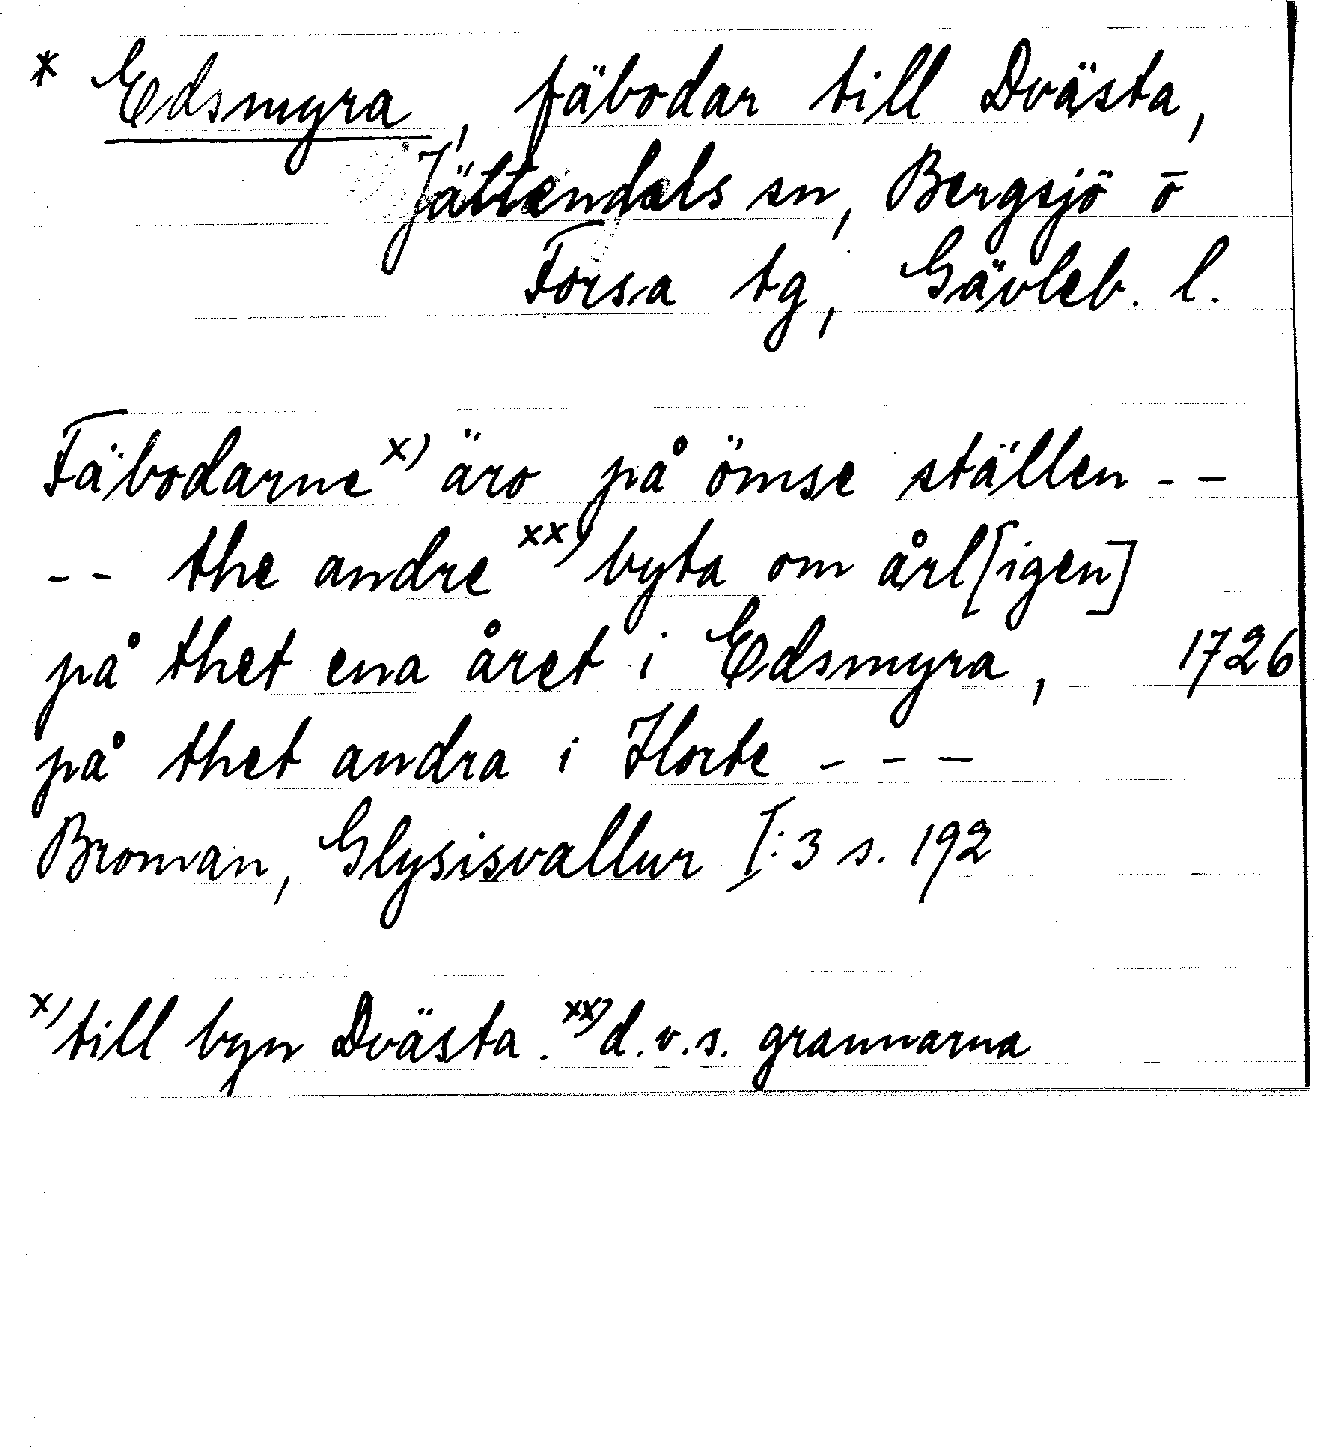 * Edsmyra, fäbodar till Dvästa,
Jättendals sn, Bergsjö ō
Forsa tg, Gävleb. l.
Fäbodarne x) äro på ömse ställen - -
- - the andre xx) byta om årl[igen]
på thet ena året i Edsmyra, 1726
på thet andra i Horte - - -
Broman, Glysisvallur I:3 s. 192
x) till byn Dvästa. xx) d.v.s. grannarna